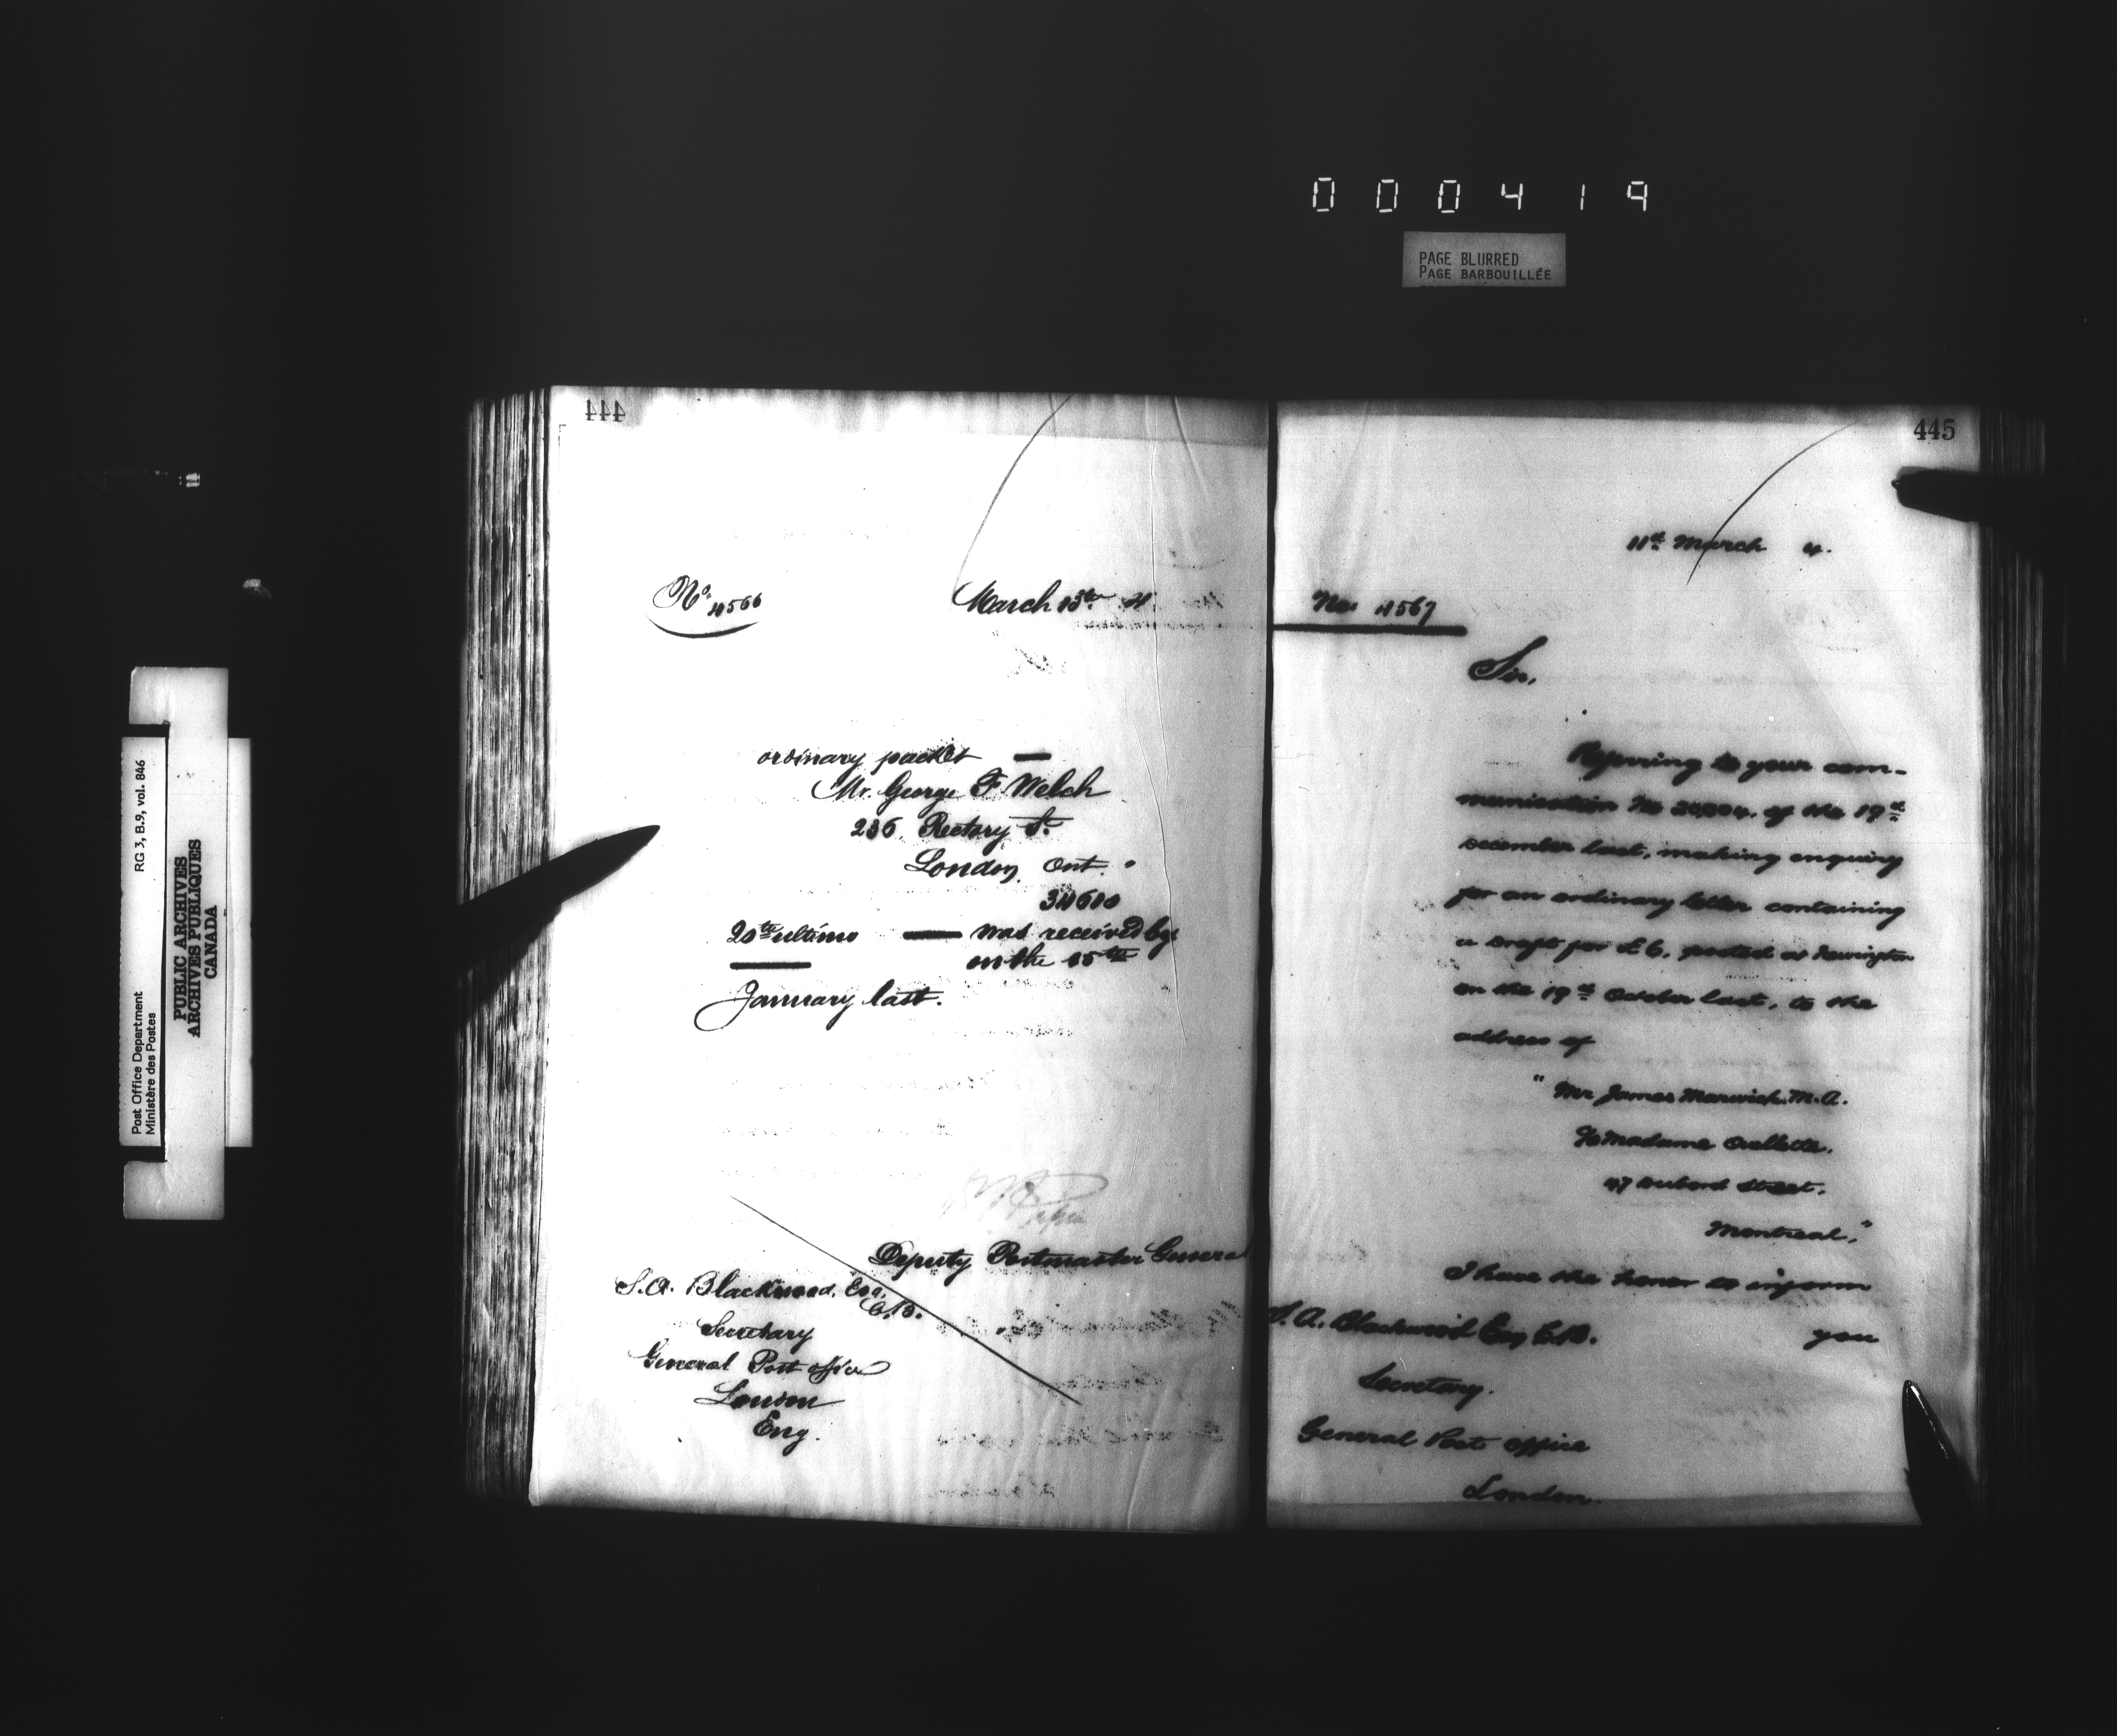 000419
PAGE BLURRED
PAGE BARBOUILLÉE
Post Office Department
Ministère des Postes
RG 3, B.9, vol. 846
PUBLIC ARCHIVES
ARCHIVES PUBLIQUES
CANADA
444
No. 4566
March 13th 4
ordinary packet
Mr. George F Welch
236 Rectory St.
London, Ont."
34610
20th ultimo — was received by
on the 15th
January last.
Deputy Postmaster General
S.A. Blackwood, Esq.
C.B.
Secretary
General Post Office
London
Eng.
445
11th March 4.
No. 4567
Sir,
Referring to your com-
munication No of the 19th
December last, making enquiry
for an ordinary letter containing
a Draft for £6, posted at Newington
on the 19th October last, to the
address of
"Mr James Marwick. M.A.
c/o Madame Ouellette,
47 Dubord Street,
Montreal,"
I have the honor to inform
you
S.A. Blackwood Esq C.B.
Secretary.
General Post Office
London.